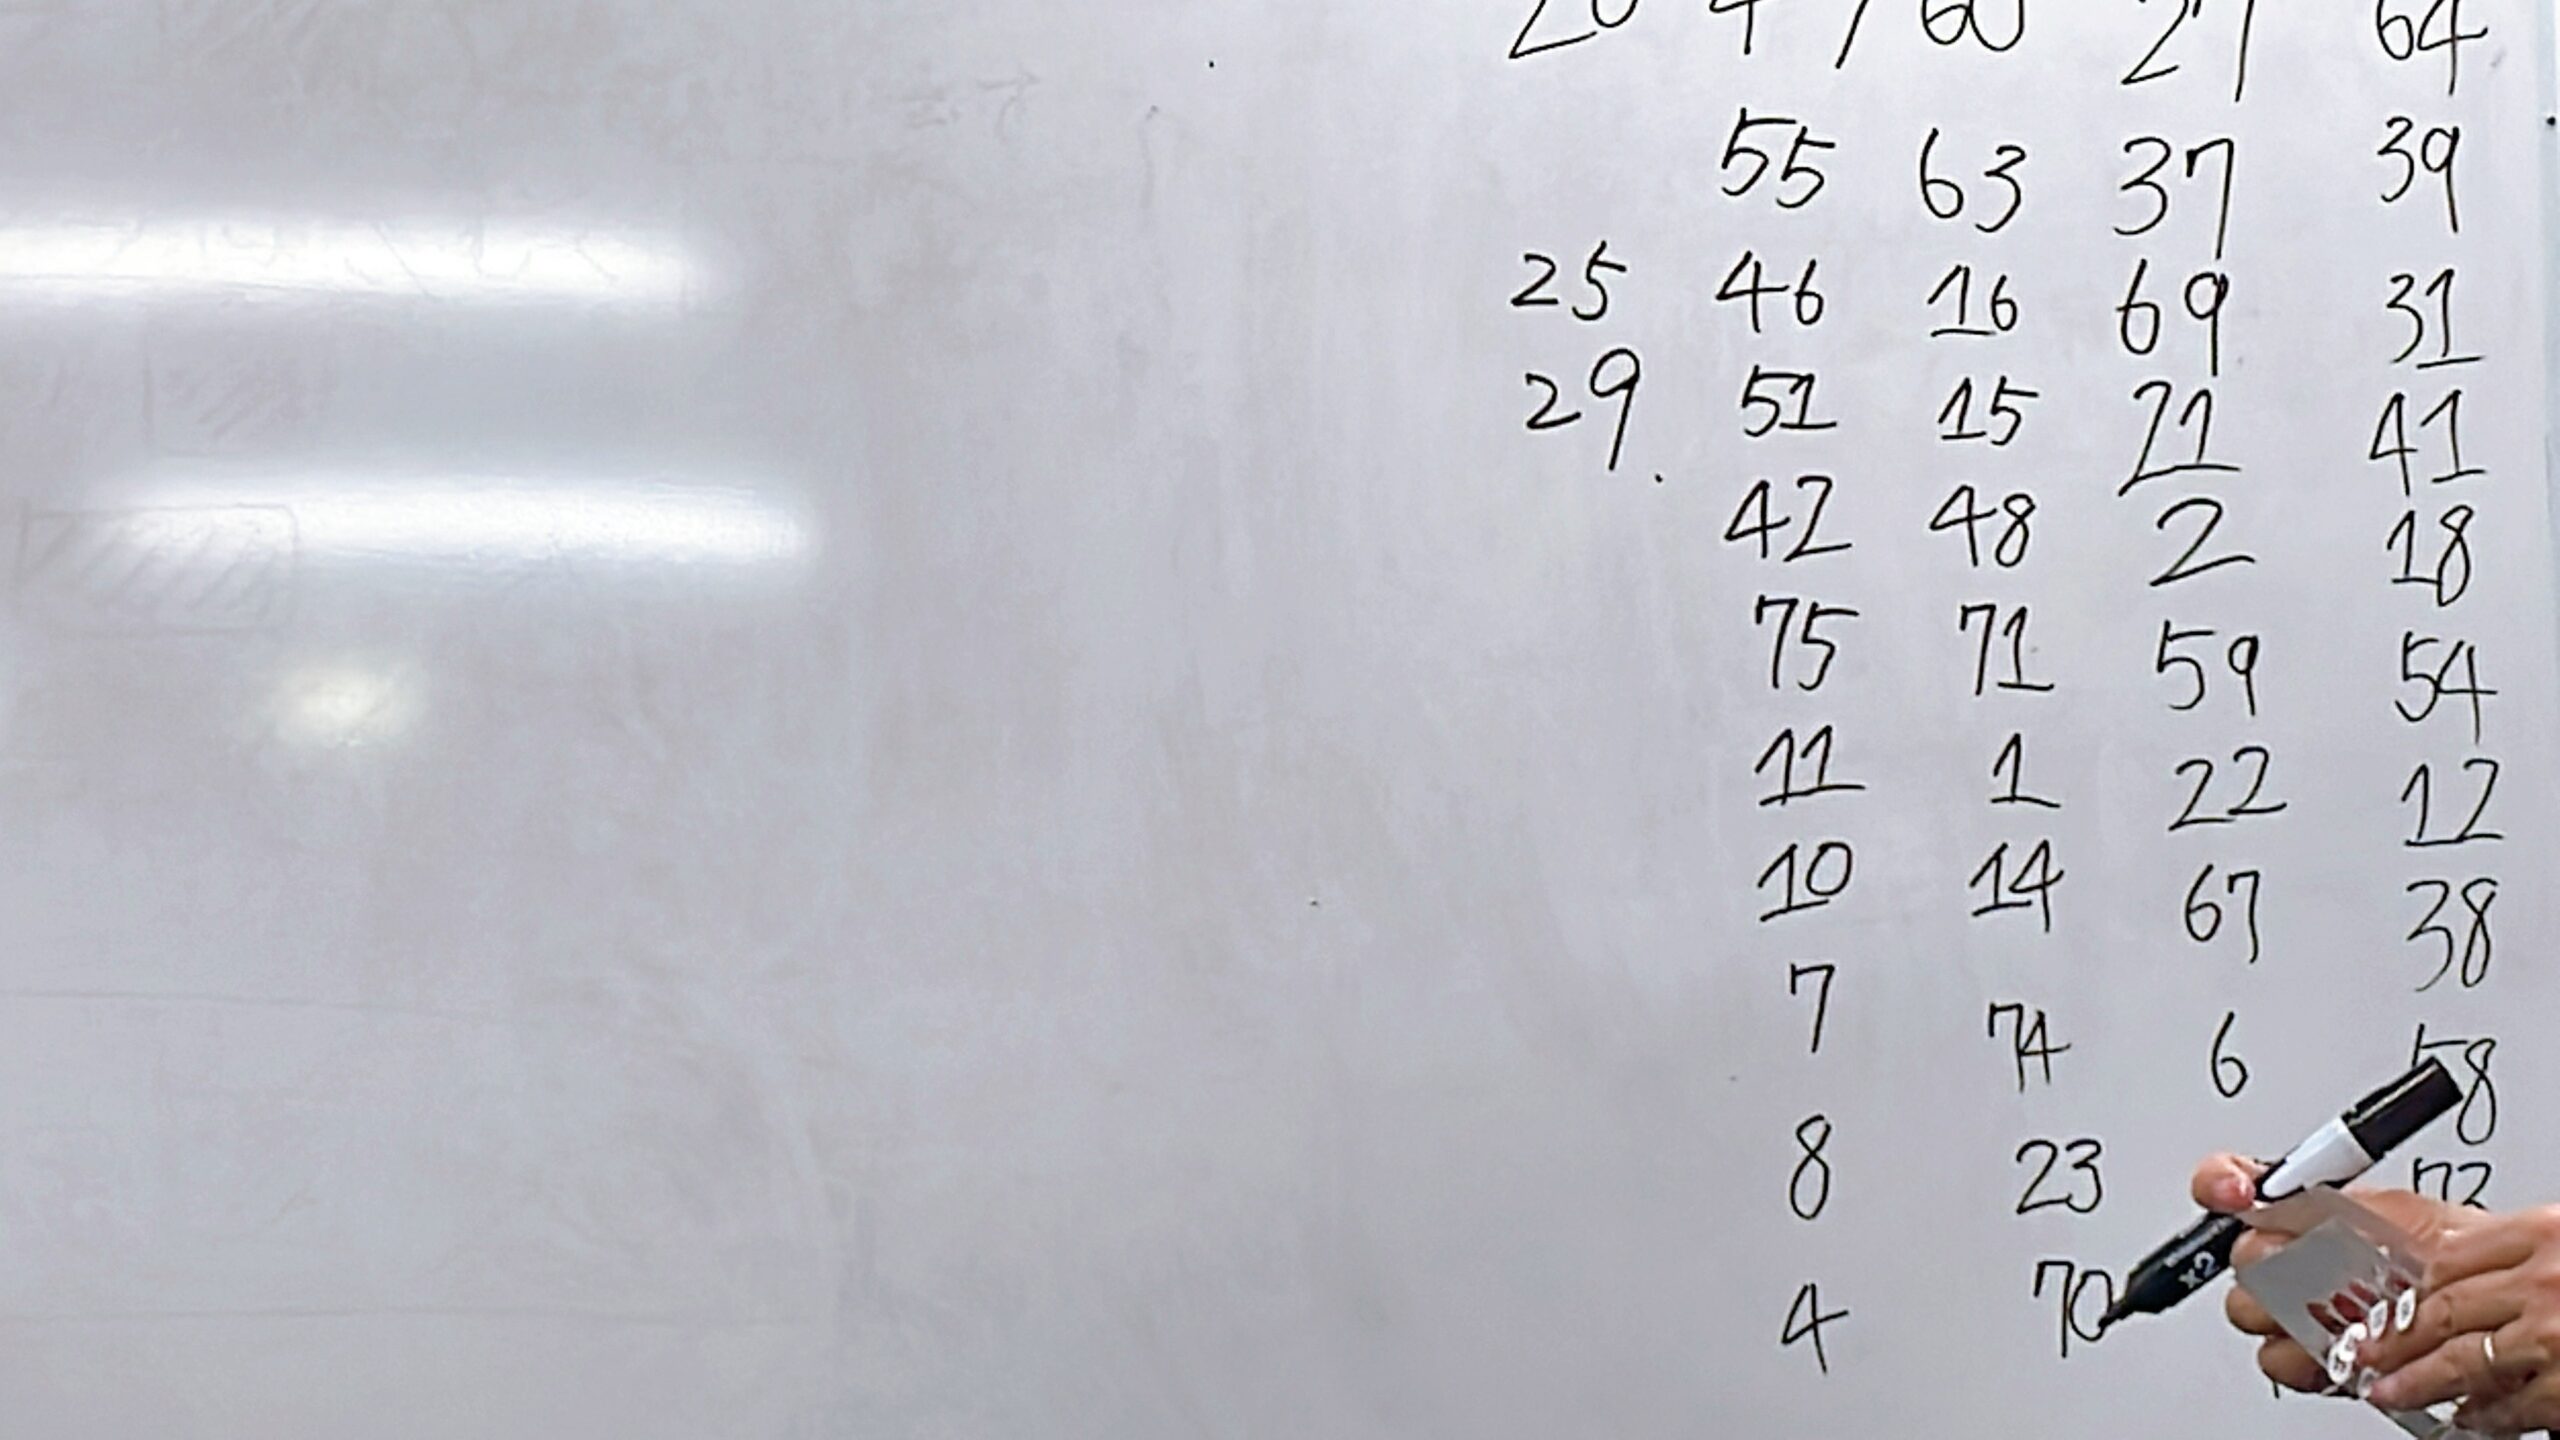 20 47 60 27 64
55 63 37 39
25 46 16 69 31
29 51 15 21 41
42 48 2 18
75 71 59 54
11 1 22 12
10 14 67 38
7 74 6 58
8 23
4 70
X2